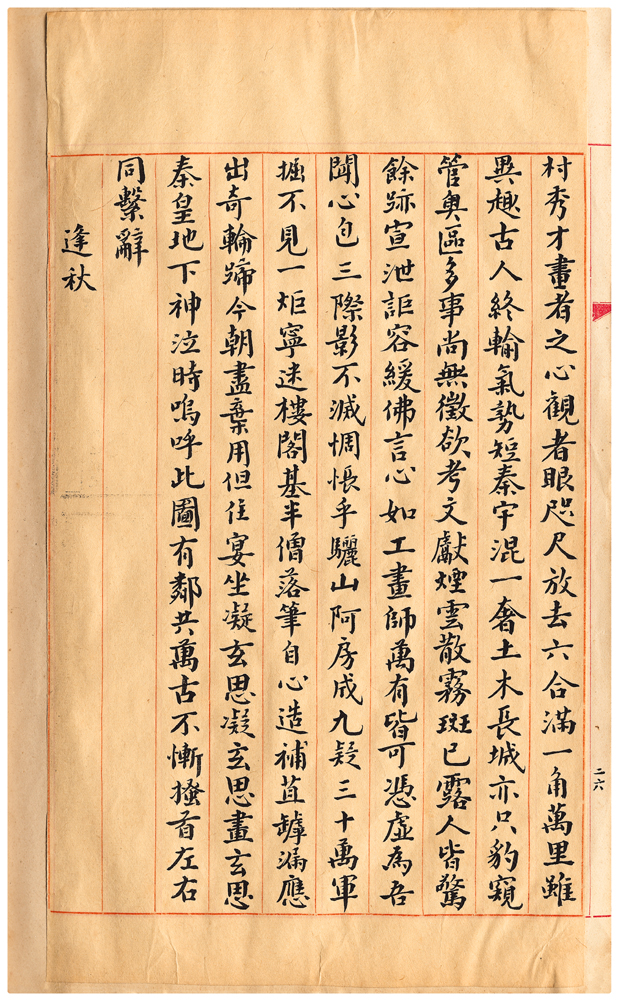 村秀才畫者之心觀者眼咫尺放去六合滿一角萬里雖
異趣古人終輸氣勢短秦宇混一奢土木長城亦只豹窺
管奧區多事尚無徵欲考文獻煙雲散霧斑已露人皆驚
餘跡宣泄詎容緩佛言心如工畫師萬有皆可憑虛為吾
聞心包三際影不滅惆悵乎驪山阿房成九疑三十萬軍
掘不見一炬寧迷樓閣基半僧落筆自心造補苴罅漏應
出奇輪蹄今朝盡棄用但住宴坐凝玄思凝玄思畫玄思
秦皇地下神泣時嗚呼此圖有鄰共萬古不慚搔首左右
同繫辭
逢秋
二六